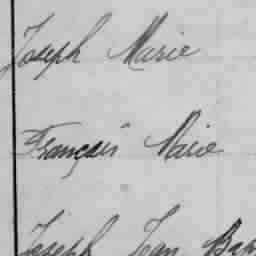 Joseph Marie
Français Marie
Joseph Jean Bap